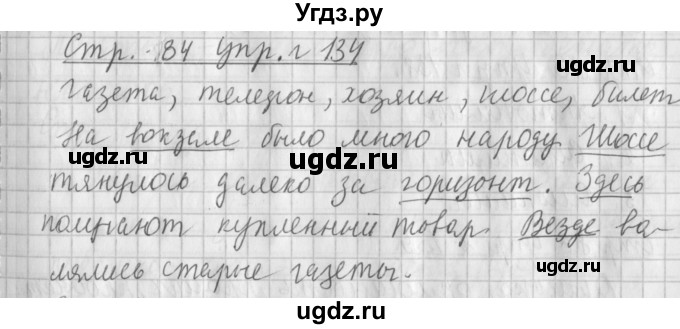 Угдз.ру
Стр. 84 упр. г 134
газета, телефон, хозяин, шоссе, билет
На вокзале было много народу Шоссе
тянулось далеко за горизонт. Здесь
получают купленный товар. Везде ва-
лялись старые газеты.
ugdz.ru
ugdz.ru
ugdz.ru
ugdz.ru
ugdz.ru
ugdz.ru
ugdz.ru